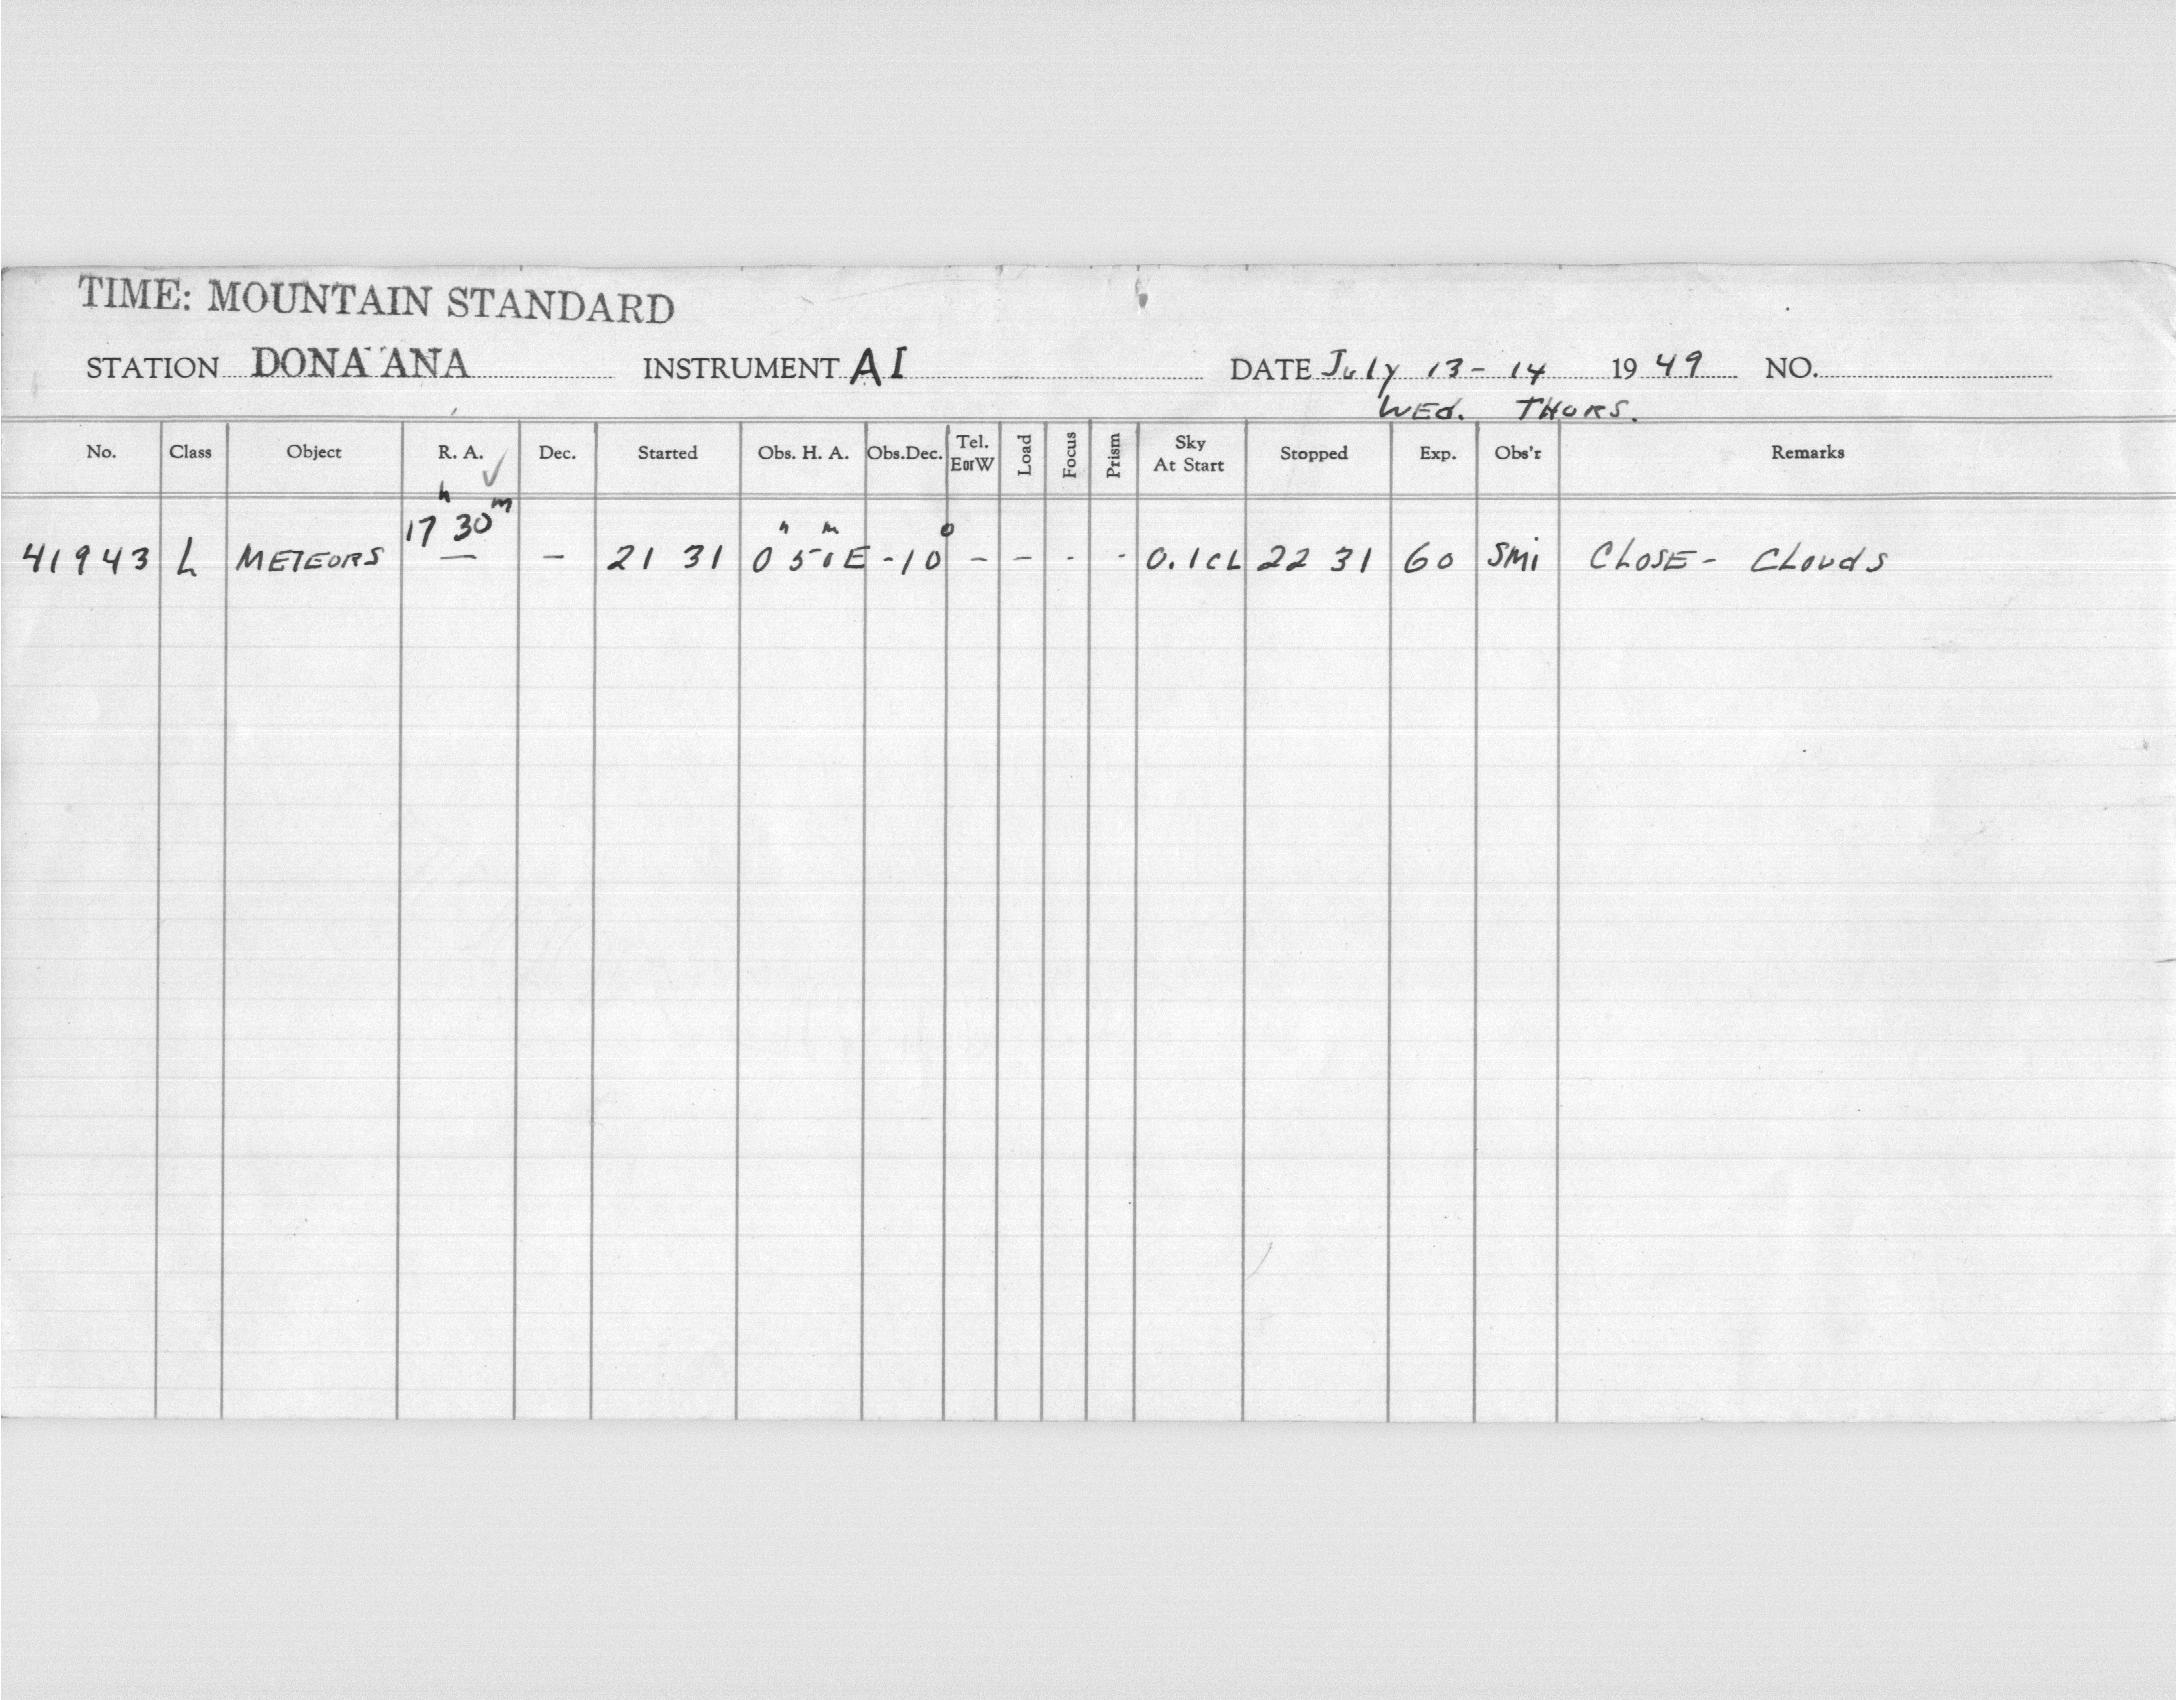 TIME: MOUNTAIN STANDARD
STATION DONA ANA INSTRUMENT AI DATE July 13 - 14 1949 NO.
WEd. THURS.
No. Class Object R. A. ✓ Dec. Started Obs. H. A. Obs.Dec. Tel. E or W Load Focus Prism Sky At Start Stopped Exp. Obs'r Remarks
17h 30m
41943 L METEORS — - 21 31 0h 51m E -10° - - - - 0.1 CL 22 31 60 SMi CLOSE - CLOUdS